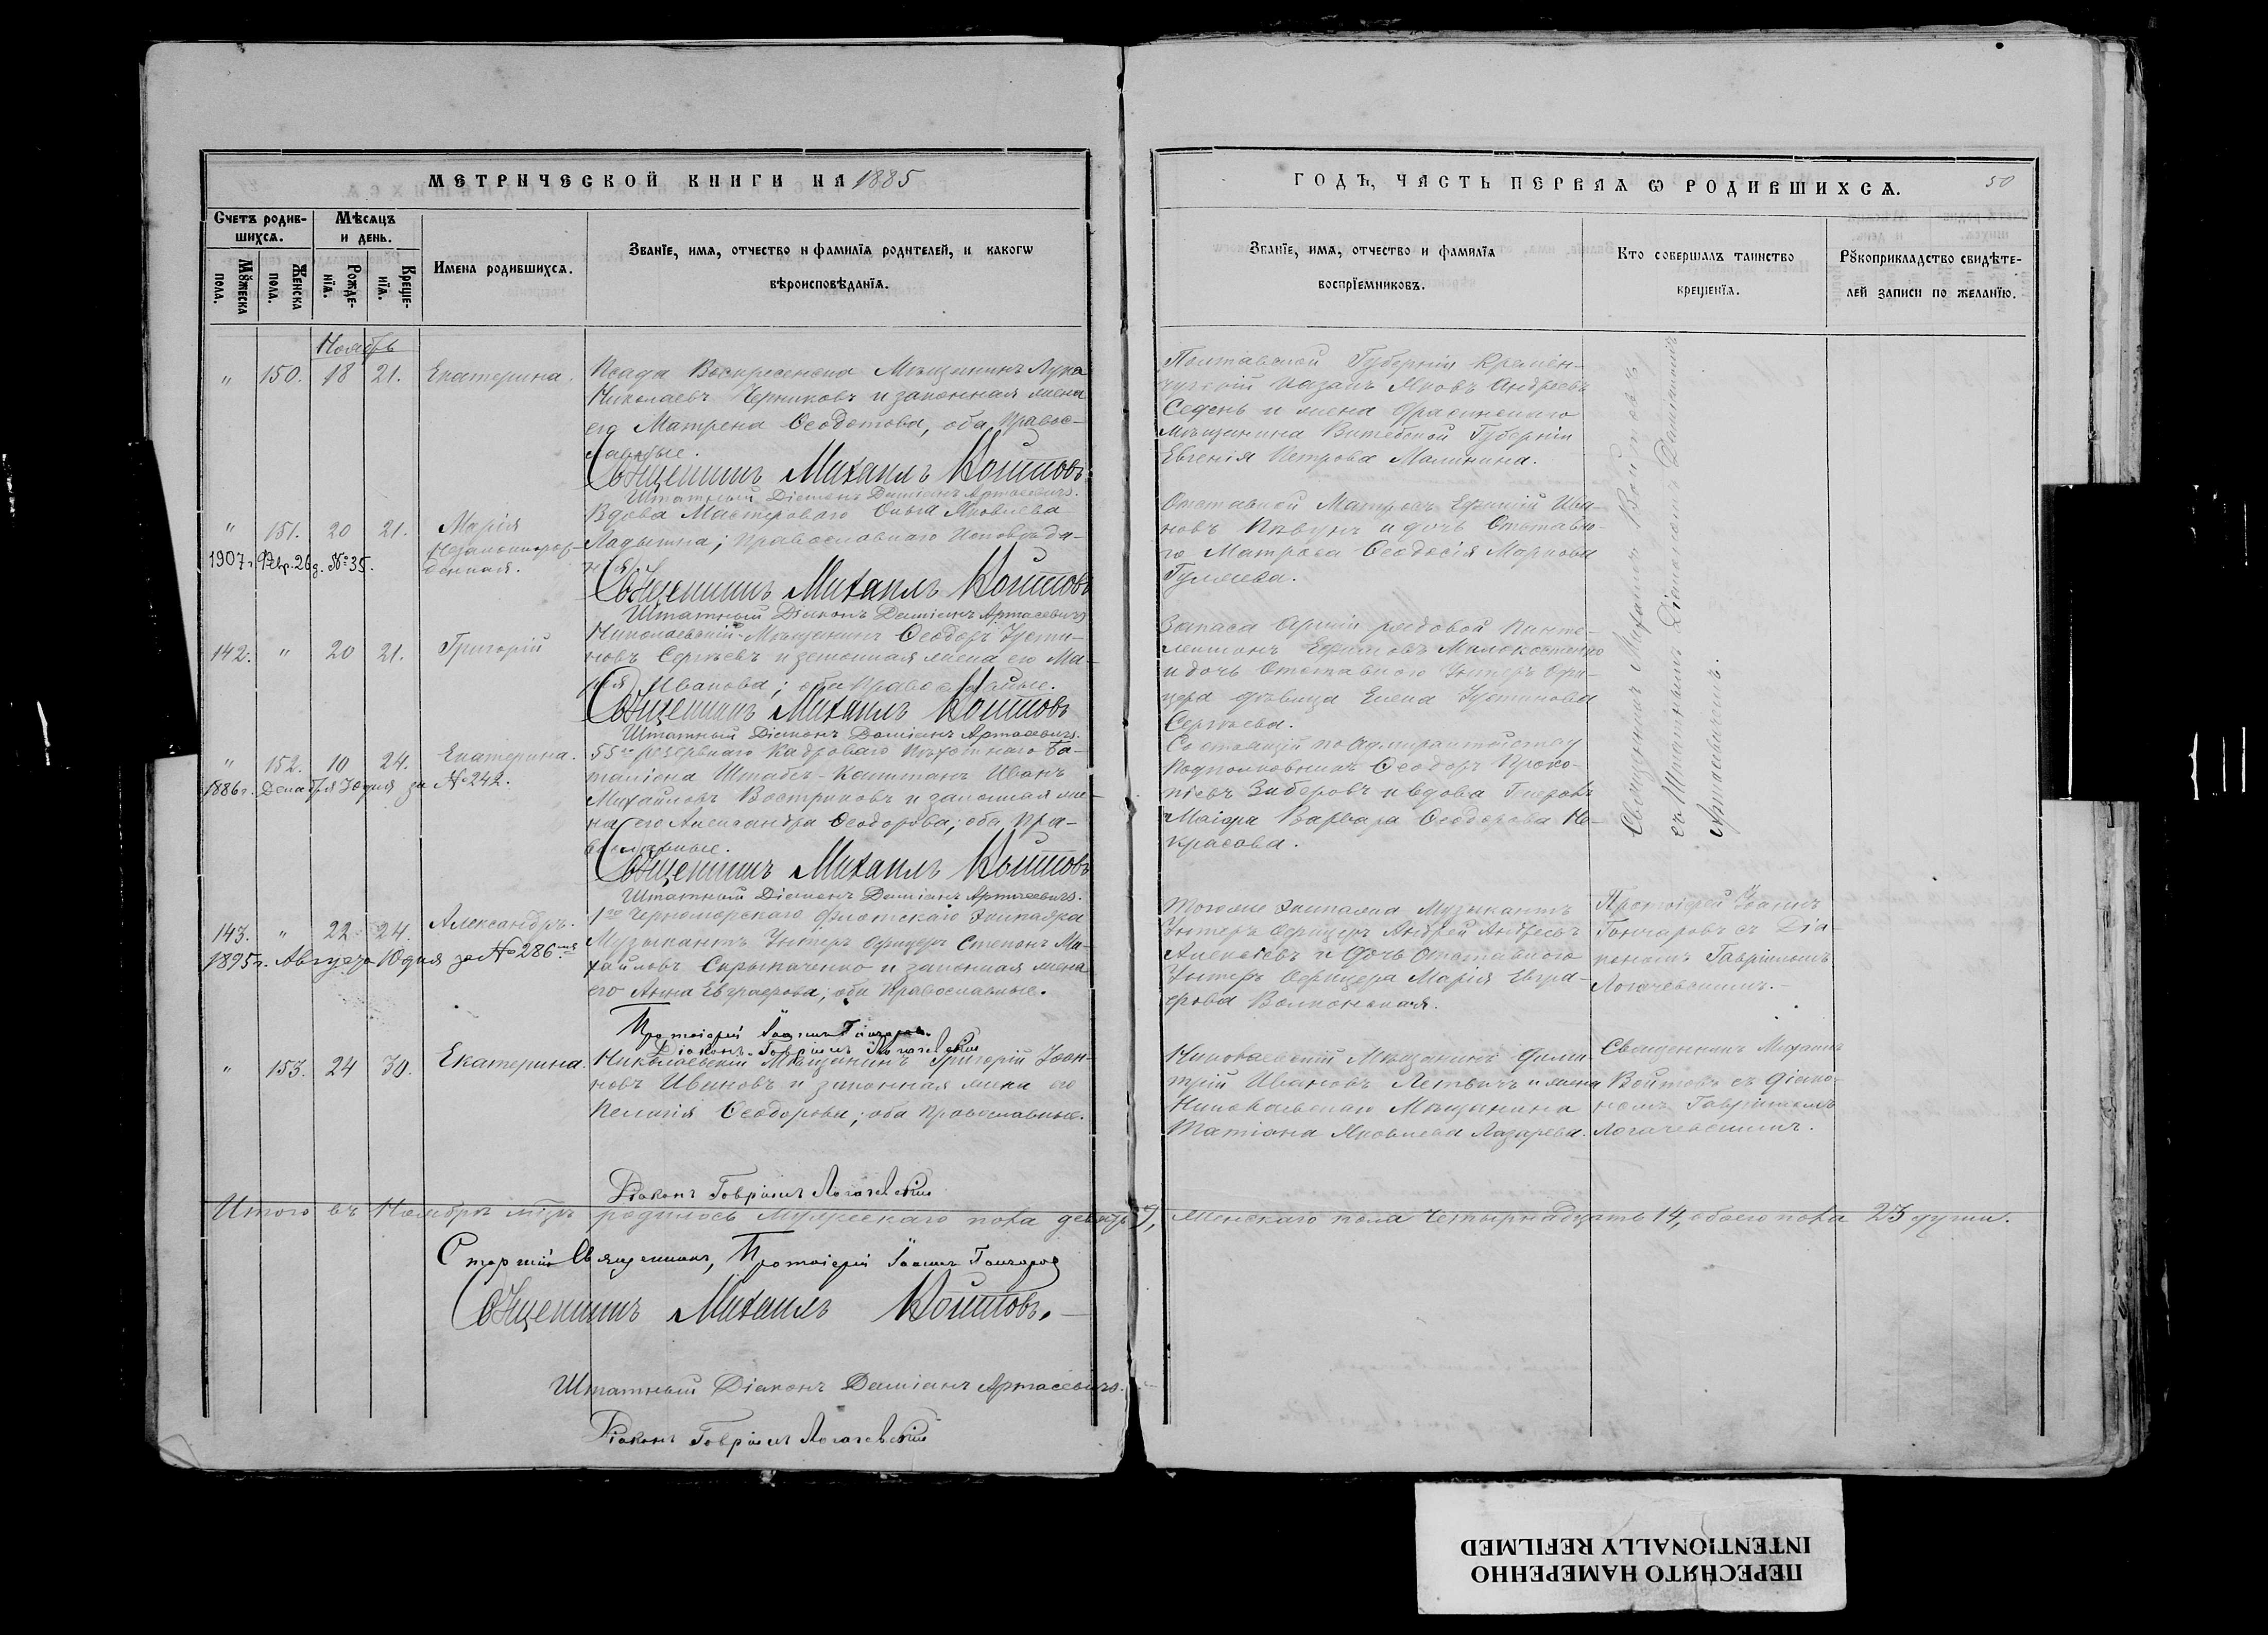 МЕТРИЧЕСКОЙ КНИГИ НА 1885
ГОДЪ, ЧАСТЬ ПЕРВАЯ Ѡ РОДИВШИХСЯ.
50
Счетъ родив-
шихся.
Мѣсяцъ
и день.
Мꙋжеска
пола.
Женска
пола.
Рожде-
нїя.
Креще-
нїя.
Имена родившихся.
Званїе, имя, отчество и фамилїя родителей, и какогѡ
вѣроисповѣданїя.
Званїе, имя, отчество и фамилїя
воспрїемниковъ.
Кто совершалъ таинство
крещенїя.
Рꙋкоприкладство свидѣте-
лей записи по желанїю.
Ноябрь
" 150. 18 21. Екатерина.
Посада Воскресенска Мѣщанинъ Лука
Николаевъ Черниковъ и законная жена
его Матрена Ѳеодотова, оба Правос-
лавные.
Священникъ Михаилъ Войтовъ
Штатный Діаконъ Даміанъ Артасевичъ.
Полтавской Губерніи Кремен-
чугскій казакъ Яковъ Андреевъ
Седень и жена
мѣщанина Витебской Губерніи
Евгенія Петрова Малинина.
" 151. 20 21. Марія
незаконнорож-
денная.
1907 г. Февр. 26 д. № 35.
Вдова Мастероваго Ольга Яковлева
Ладыгина; Православнаго Исповѣда-
нія.
Священникъ Михаилъ Войтовъ
Штатный Діаконъ Даміанъ Артасевичъ
Отставной Матросъ Ефимій Ива-
новъ Пѣвунъ и дочь Отставно-
го Матроса Ѳеодосія Маркова
Гуляева.
142. " 20 21. Григорій
Николаевскій Мѣщанинъ Ѳеодоръ Усти-
новъ Сергѣевъ и законная жена его Ма-
рія Иванова; оба Православные.
Священникъ Михаилъ Войтовъ
Штатный Діаконъ Даміанъ Артасевичъ.
Запаса Арміи рядовой Панте-
леимонъ Ефимовъ Милокостенко
и дочь Отставного Унтеръ Офи-
цера дѣвица Елена Устинова
Сергѣева.
" 152. 10 24. Екатерина.
1886 г. Декабря 30 дня за № 242.
55го резервнаго Кадроваго Пѣхотнаго Ба-
таліона Штабсъ-Капитанъ Иванъ
Михайловъ Востриковъ и законная же-
на его Александра Ѳеодорова; оба Пра-
вославные.
Священникъ Михаилъ Войтовъ
Штатный Діаконъ Даміанъ Артасевичъ.
Состоящій по Адмиралтейству
Подполковникъ Ѳеодоръ Проко-
піевъ Зиберовъ и вдова Генералъ
Маіора Варвара Ѳеодорова Не-
красова.
Священникъ Михаилъ Войтовъ
съ Штатнымъ Діакономъ Даміаномъ
Артасевичемъ.
143. " 22 24. Александръ.
1895 г. Августа 10 дня за № 286.
1го Черноморскаго Флотскаго Экипажа
Музыкантъ Унтеръ Офицеръ Степанъ Ми-
хайловъ Скрыпаченко и законная жена
его Анна Евграфова; оба Православные.
Протоіерей Іоаннъ Гончаровъ
Діаконъ Гавріилъ Логачевскій
Тогоже Экипажа Музыкантъ
Унтеръ Офицеръ Андрей Андреевъ
Алексѣевъ и Дочь Отставного
Унтеръ Офицера Марія Евгра-
фова Волконская.
Протоіерей Іоаннъ
Гончаровъ съ Діа-
кономъ Гавріиломъ
Логачевскимъ.
" 153. 24 30. Екатерина.
Николаевскій Мѣщанинъ Григорій Іоан-
новъ Ивановъ и законная жена его
Пелагія Ѳеодорова; оба Православные.
Діаконъ Гавріилъ Логачевскій
Николаевскій Мѣщанинъ Дими-
трій Ивановъ Летвичъ и жена
Николаевскаго Мѣщанина
Татіана Яковлева Лазарева.
Священникъ Михаилъ
Войтовъ съ Діако-
номъ Гавріиломъ
Логачевскимъ.
Итого въ Ноябрѣ мѣцѣ родилось Мужескаго пола девять 9, Женскаго пола Четырнадцать 14, обоего пола 23 души.
Старшій Священникъ, Протоіерей Іоаннъ Гончаровъ
Священникъ Михаилъ Войтовъ.
Штатный Діаконъ Даміанъ Артасевичъ.
Діаконъ Гавріилъ Логачевскій
ПЕРЕСНЯТО НАМЕРЕННО
INTENTIONALLY REFILMED